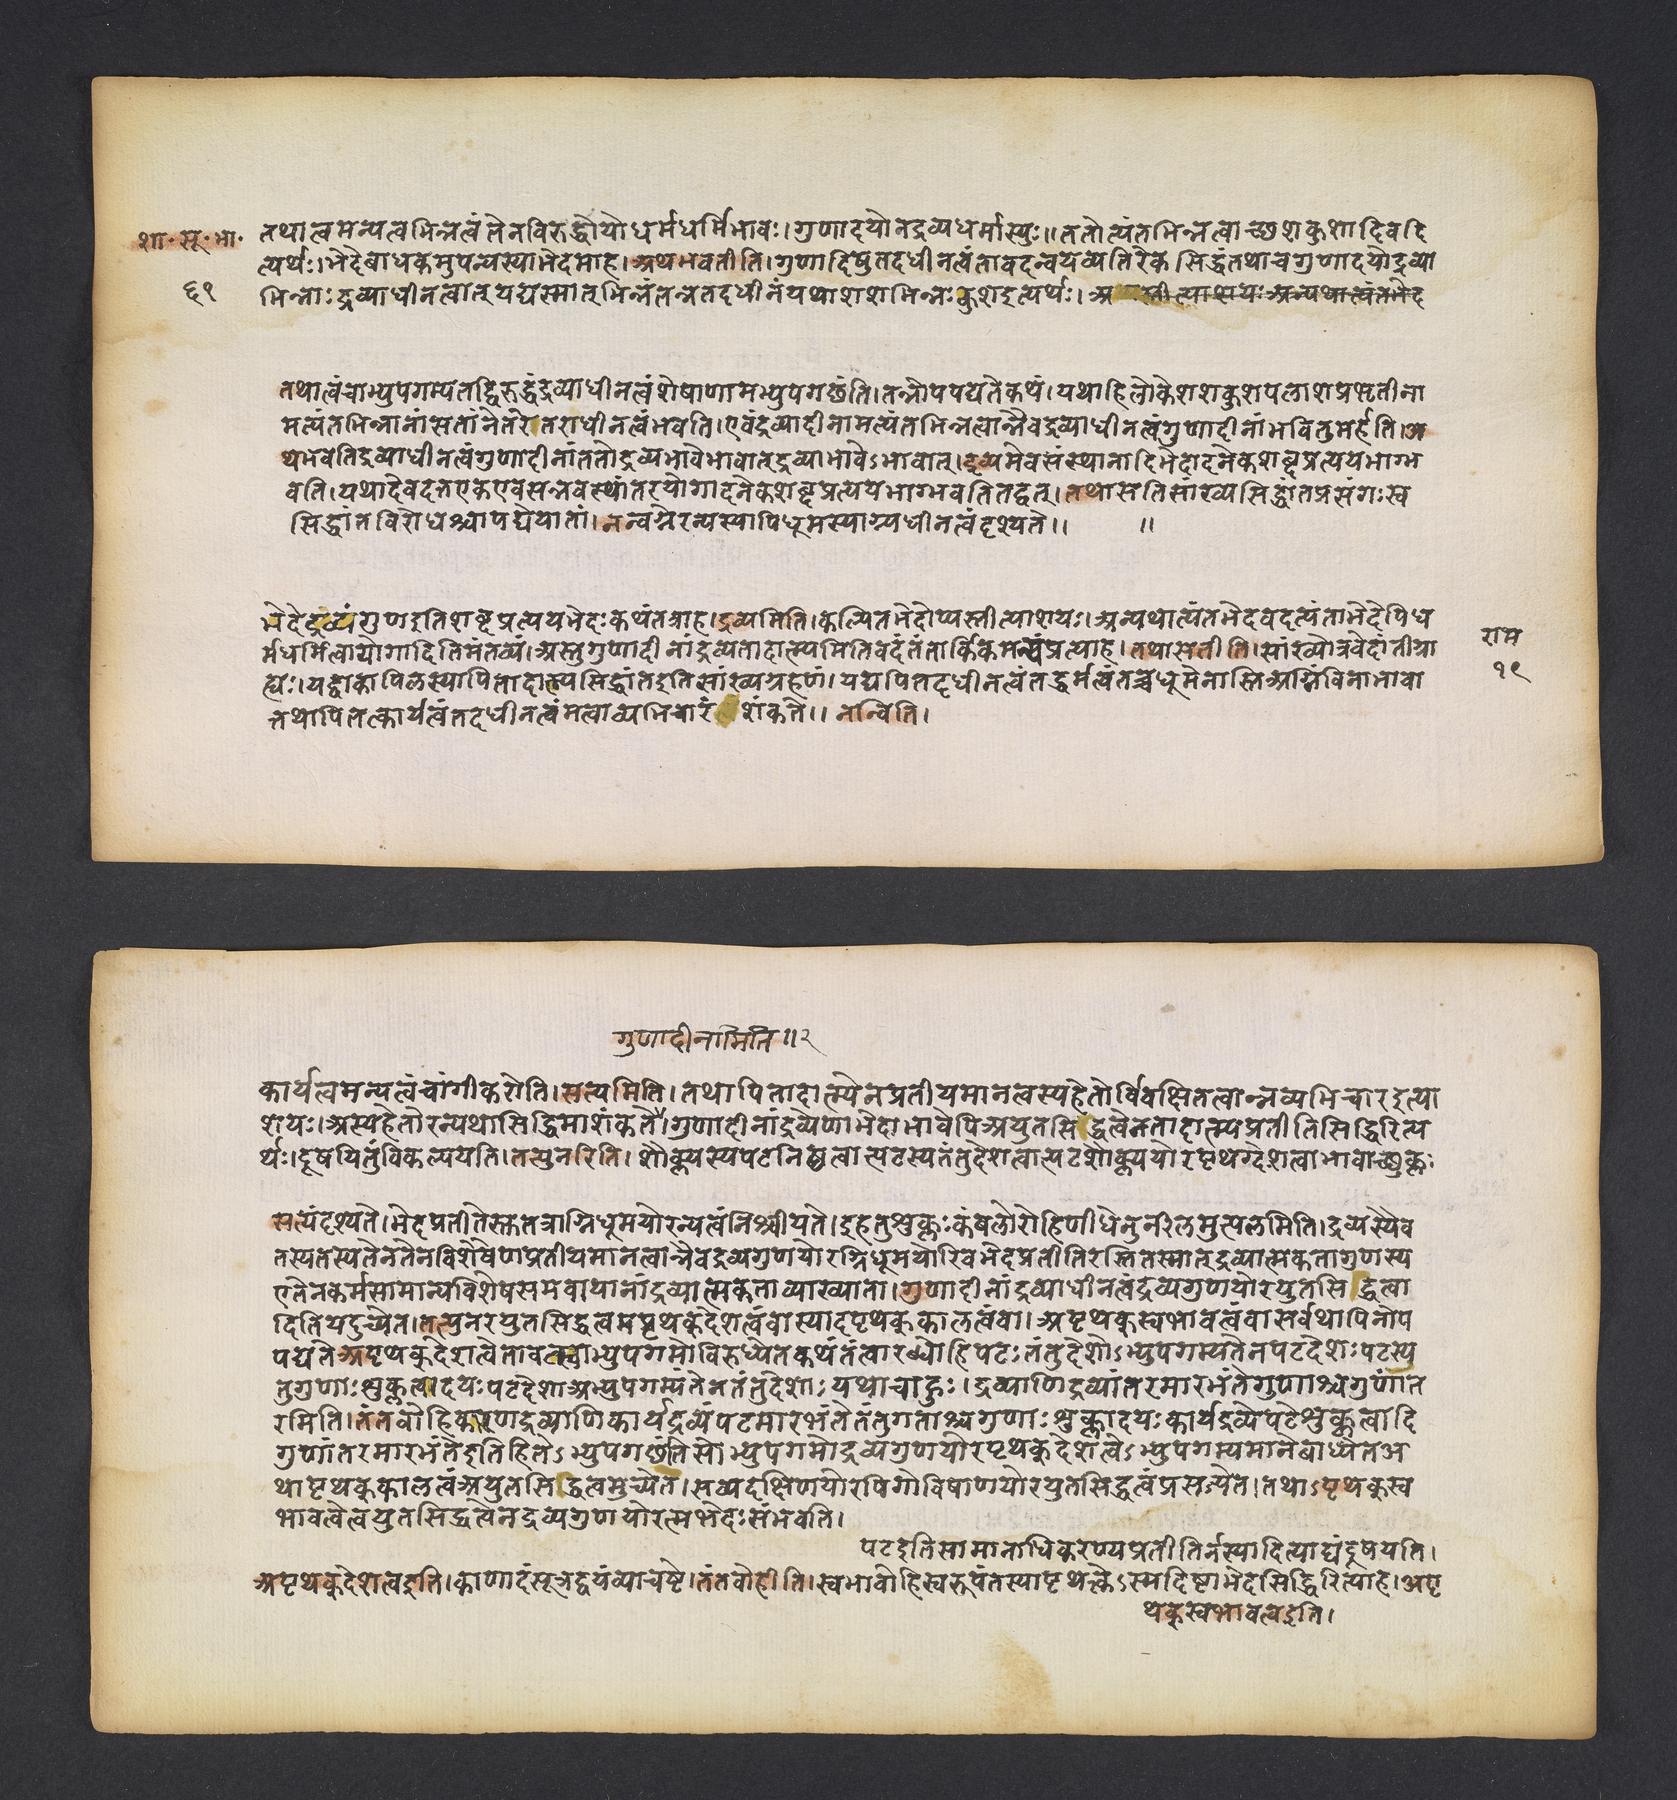 शा॰ सू॰ भा॰
६१
तथात्वमन्यत्वभिन्नत्वंतेनविरुद्धोयोधर्मधर्मिभावः।गुणादयोनद्रव्यधर्मास्युः॥ततोत्यंतभिन्नत्वाच्छशकुशादिवदि
त्यर्थः।भेदेबाधकमुपन्यस्याभेदमाह।अथभवतीति।गुणादिषुतदधीनत्वंतावदन्वयव्यतिरेकसिद्धंतथाचगुणादयोद्रव्या
भिन्नाःद्रव्याधीनत्वात्यद्यस्मात्भिन्नंतन्नतदधीनंयथाशशभिन्नःकुशइत्यर्थः।अ स्तीत्याशयःअन्यथात्वंतभेद
तथात्वंचाभ्युपगम्यतद्विरुद्धंद्रव्याधीनत्वंशेषाणामभ्युपगछंति।तन्नोपपद्यतेकथं।यथाहिलोकेशशकुशपलाशप्रभृतीना
मत्यंतभिन्नानांसतांनेतरेतराधीनत्वंभवति।एवंद्रव्यादीनामत्यंतभिन्नत्वान्नैवद्रव्याधीनत्वंगुणादीनांभवितुमर्हति।अ
थभवतिद्रव्याधीनत्वंगुणादीनांततोद्रव्यभावेभावात्द्रव्याभावेऽभावात्।द्रव्यमेवसंस्थानादिभेदादनेकशब्दप्रत्ययभाग्भ
वति।यथादेवदत्तएकएवसन्नवस्थांतरयोगादनेकशब्दप्रत्ययभाग्भवतितद्वत्।तथासतिसांख्यसिद्धांतप्रसंगःस्व
सिद्धांतविरोधश्चापद्येयातां।नन्वग्नेरन्यस्यापिधूमस्याग्न्यधीनत्वंदृश्यते॥ ॥
भेदेद्रव्यंगुणइतिशब्दप्रत्ययभेदःकथंतत्राह।द्रव्यमिति।कल्पितभेदोप्यस्तीत्याशयः।अन्यथात्यंतभेदवदत्यंताभेदेपिध
र्मधर्मित्वायोगादितिमंतव्यं।अस्तुगुणादीनांद्रव्यतादात्म्यमितिवदंतंतार्किकमन्यंप्रत्याह।तथासतीति।सांख्योत्रवेदांतीया
ह्यः।यद्वाकापिलस्यापितादात्म्यसिद्धांतइतिसांख्यग्रहणं।यद्यपितदधीनत्वंतद्धर्मत्वंतच्चधूमेनास्तिअग्निंविनाभावा
त्तथापितत्कार्यत्वंतदधीनत्वंमत्वाव्यभिचारं शंकते॥ नन्विति।
राम
१९
गुणादीनामिति॥२
कार्यत्वमन्यत्वंचांगीकरोति।सत्यमिति।तथापितादात्म्येनप्रतीयमानत्वस्यहेतोर्विवक्षितत्वान्नव्यभिचारइत्या
शयः।अस्यहेतोरन्यथासिद्धिमाशंकते।गुणादीनांद्रव्येणाभेदाभावेपिअयुतसिद्धत्वेनतादात्म्यप्रतीतिसिद्धिरित्य
र्थः।दूषयितुंविकल्पयति।तत्पुनरिति।शौक्ल्यस्यपटनिष्ठत्वात्पटस्यतंतुदेशत्वात्पटशौक्ल्ययोरपृथग्देशत्वाभावाच्छुक्लः
सत्यंदृश्यते।भेदप्रतीतेस्तत्रतत्राग्निधूमयोरन्यत्वंनिश्चीयते।इहतुशुक्लःकंबलोरोहिणीधेनुर्नीलमुत्पलमिति।द्रव्यस्यैव
तस्यतस्यतेनतेनविशेषेणप्रतीयमानत्वान्नैवद्रव्यगुणयोरग्निधूमयोरिवभेदप्रतीतिरस्तितस्मात्द्रव्यात्मकतागुणस्य
एतेनकर्मसामान्यविशेषसमवायानांद्रव्यात्मकताव्याख्याता।गुणादीनांद्रव्याधीनत्वंद्रव्यगुणयोरयुतसिद्धत्वा
दितियदुच्येत।तत्पुनरयुतसिद्धत्वमपृथक्देशत्वंवास्यादपृथक्कालत्वंवा।अपृथक्स्वभावत्वंवासर्वथापिनोप
पद्यतेअपृथक्देशत्वेतावत्स्वाभ्युपगमोविरुध्येतकथंतंत्वारब्धोहिपटःतंतुदेशोऽभ्युपगम्यतेनपटदेशःपटस्य
तुगुणाःशुक्लत्वादयःपटदेशाअभ्युपगम्यंतेनतंतुदेशाःयथाचाहुः।द्रव्याणिद्रव्यांतरमारभंतेगुणाश्चगुणांत
रमिति।तंतवोहिकारणद्रव्याणिकार्यद्रव्यंपटमारभंतेतंतुगताश्चगुणाःशुक्लादयःकार्यद्रव्येपटेशुक्लत्वादि
गुणांतरमारभंतेइतिहितेऽभ्युपगछंतिसोभ्युपगमोद्रव्यगुणयोरपृथक्देशत्वेऽभ्युपगम्यमानेबाध्येतअ
थापृथक्कालत्वंअयुतसिद्धत्वमुच्येत।सव्यदक्षिणयोरपिगोविषाणयोरयुतसिद्धत्वंप्रसज्येत।तथाऽपृथक्स्व
भावत्वेत्वयुतसिद्धत्वेनद्रव्यगुणयोरात्मभेदःसंभवति।
पटइतिसामानाधिकरण्यप्रतीतिर्नस्यादित्याद्यंदूषयति।
अपृथक्देशत्वइति।काणादंसूत्रद्वयंव्याचष्टे।तंतवोहीति।स्वभावोहिस्वरूपंतस्यापृथक्त्वेऽस्मदिष्टाभेदसिद्धिरित्याह।अपृ
थक्स्वभावत्वइति।